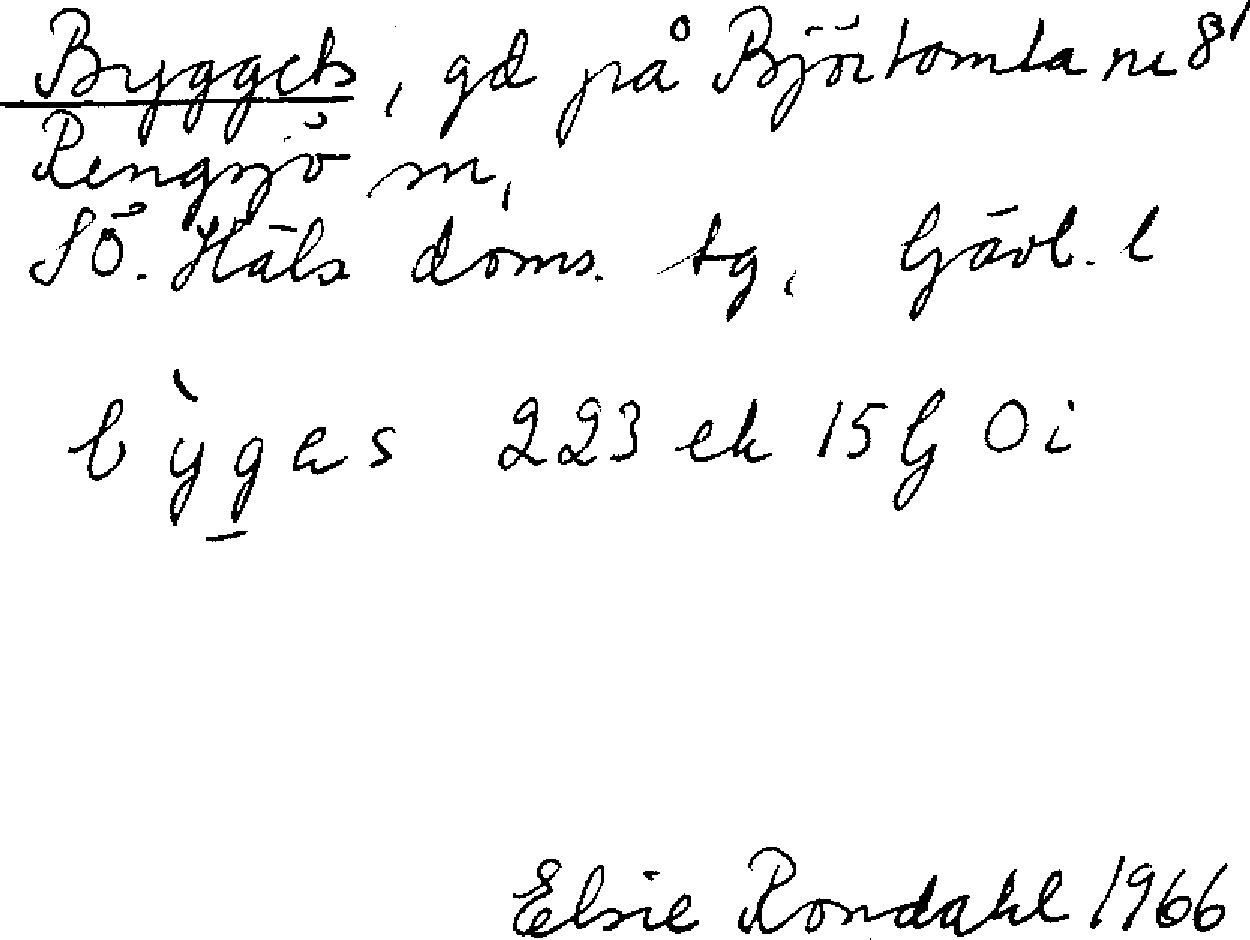 Byggets, gd på Björtomta nr 8¹
Rengsjö sn,
SÖ. Häls doms. tg, Gävl. l
b ỳ g e s 223 ek 15 G 0 i
Elsie Rondahl 1966